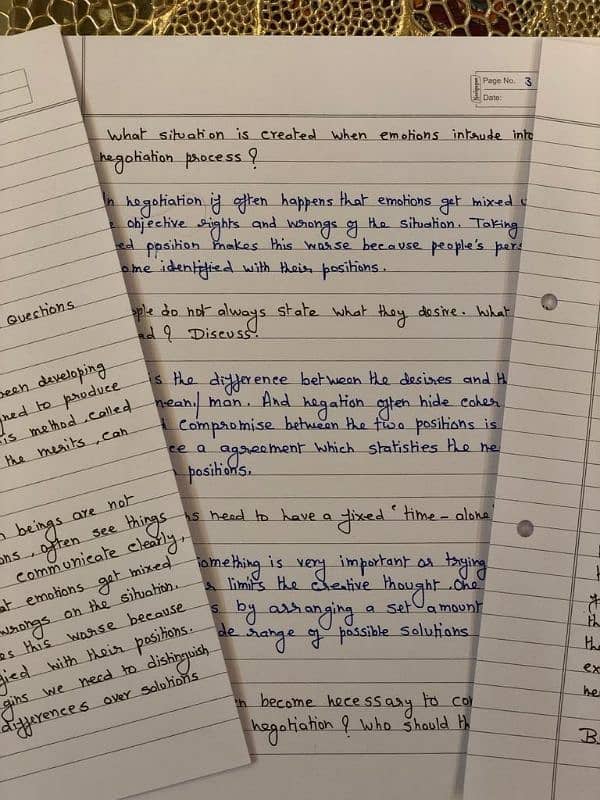 Page No. 3
Date:
What situation is created when emotions intrude into
negotiation process ?
In negotiation if often happens that emotions get mixed
objective rights and wrongs of the situation. Taking
ed pposition makes this worse because people's per
ome identified with their positions.
ple do not always state what they desire. What
ad ? Discuss.
is the difference between the desires and th
mean/ man. And negation often hide coher
compromise between the two positions is
ce a agreement which statisties the ne
positions.
ns need to have a fixed ' time - alone
something is very important as trying
limits the creative thought. One
s by arranging a set amount
de range of possible solutions
n become necessary to co
negotiation ? Who should th
Questions
been developing
ned to produce
is method, called
the merits, can
n beings are not
ons, often see things
communicate clearly,
at emotions get mixed
wrongs on the situation.
es this worse because
fied with their positions.
gins we need to distinguish
differences over solutions
th
the
ex
he
B